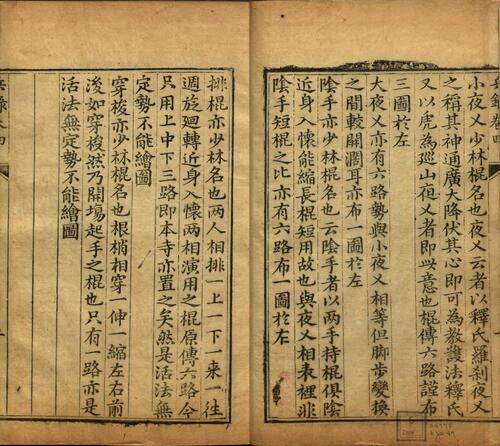 小夜乂亦少林棍名也夜乂云者以釋氏羅刹夜乂
之稱其神通廣大降伏其心即可為教護法釋氏
又以虎為廵山夜乂者即此意也棍傳六路謹布
三圖扵左
大夜乂亦有六路勢與小夜乂相等但脚步變換
之間較開濶耳亦布一圖扵左
陰手亦少林棍名也云陰手者以兩手持棍俱陰
近身入懷能縮長棍短用故也與夜乂相表裡非
陰手短棍之比亦有六路布一圖扵左
排棍亦少林名也两人相排一上一下一来一往
週旋廻轉近身入懷两相演用之棍原傳六路今
只用上中下三路即本寺亦置之矣然是活法無
定勢不能繪圖
穿梭亦少林棍名也根梢相穿一伸一縮左右前
後如穿梭然乃開塲起手之棍也只有一路亦是
活法無定勢不能繪圖